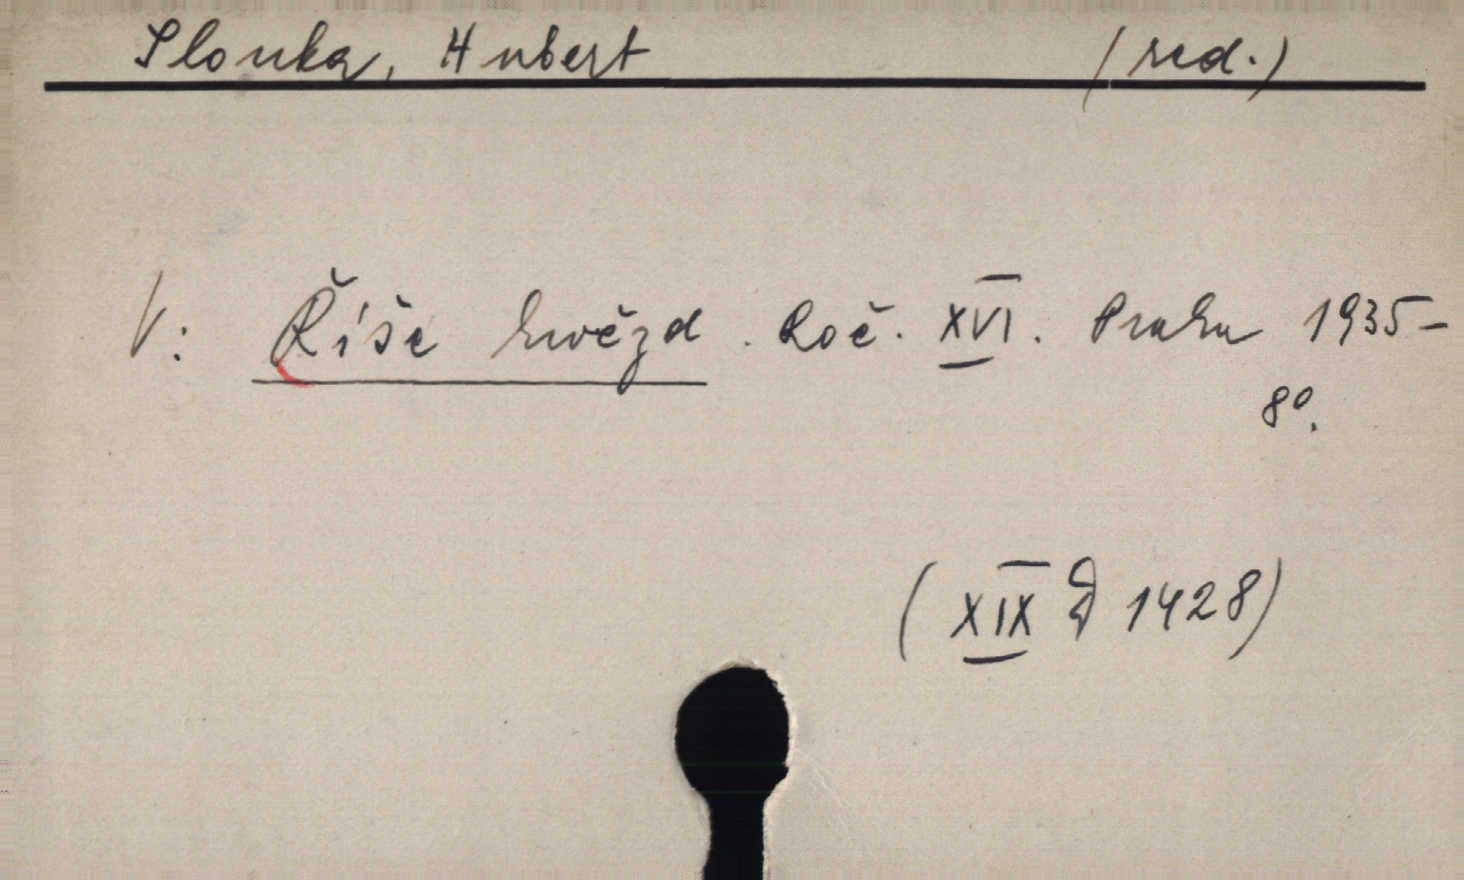 Slouka, Hubert (red.)
V: Říše hvězd. Roč. XVI. Praha 1935-
8º.
(XIX 1428)